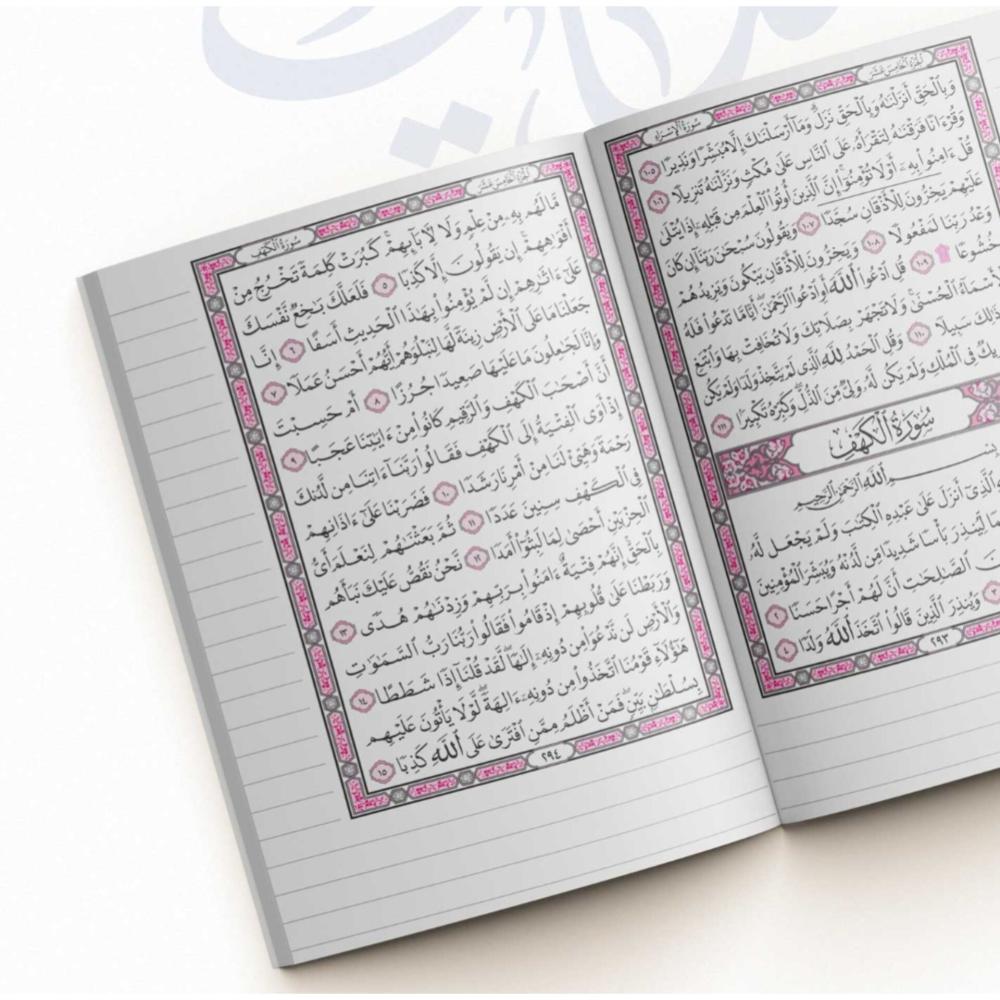 سُورَةُ الْإِسْرَاءِ الْجُزْءُ الْخَامِسَ عَشَرَ
وَبِٱلْحَقِّ أَنزَلْنَٰهُ وَبِٱلْحَقِّ نَزَلَ ۗ وَمَآ أَرْسَلْنَٰكَ إِلَّا مُبَشِّرًا وَنَذِيرًا ١٠٥
وَقُرْءَانًا فَرَقْنَٰهُ لِتَقْرَأَهُۥ عَلَى ٱلنَّاسِ عَلَىٰ مُكْثٍ وَنَزَّلْنَٰهُ تَنزِيلًا ١٠٦
قُلْ ءَامِنُوا۟ بِهِۦٓ أَوْ لَا تُؤْمِنُوٓا۟ ۚ إِنَّ ٱلَّذِينَ أُوتُوا۟ ٱلْعِلْمَ مِن قَبْلِهِۦٓ إِذَا يُتْلَىٰ
عَلَيْهِمْ يَخِرُّونَ لِلْأَذْقَانِ سُجَّدًا ١٠٧ وَيَقُولُونَ سُبْحَٰنَ رَبِّنَآ إِن كَانَ
وَعْدُ رَبِّنَا لَمَفْعُولًا ١٠٨ وَيَخِرُّونَ لِلْأَذْقَانِ يَبْكُونَ وَيَزِيدُهُمْ
خُشُوعًا ۩ ١٠٩ قُلِ ٱدْعُوا۟ ٱللَّهَ أَوِ ٱدْعُوا۟ ٱلرَّحْمَٰنَ ۖ أَيًّا مَّا تَدْعُوا۟ فَلَهُ
ٱلْأَسْمَآءُ ٱلْحُسْنَىٰ ۚ وَلَا تَجْهَرْ بِصَلَاتِكَ وَلَا تُخَافِتْ بِهَا وَٱبْتَغِ
ذَٰلِكَ سَبِيلًا ١١٠ وَقُلِ ٱلْحَمْدُ لِلَّهِ ٱلَّذِى لَمْ يَتَّخِذْ وَلَدًا وَلَمْ يَكُن
فِى ٱلْمُلْكِ وَلَمْ يَكُن لَّهُۥ وَلِىٌّ مِّنَ ٱلذُّلِّ ۖ وَكَبِّرْهُ تَكْبِيرًۢا ١١١
سُورَةُ الْكَهْفِ
بِسْمِ ٱللَّهِ ٱلرَّحْمَٰنِ ٱلرَّحِيمِ
ٱلَّذِىٓ أَنزَلَ عَلَىٰ عَبْدِهِ ٱلْكِتَٰبَ وَلَمْ يَجْعَل لَّهُۥ
لِّيُنذِرَ بَأْسًا شَدِيدًا مِّن لَّدُنْهُ وَيُبَشِّرَ ٱلْمُؤْمِنِينَ
ٱلصَّٰلِحَٰتِ أَنَّ لَهُمْ أَجْرًا حَسَنًا ٢
٣ وَيُنذِرَ ٱلَّذِينَ قَالُوا۟ ٱتَّخَذَ ٱللَّهُ وَلَدًا ٤
٢٩٣
سُورَةُ الْكَهْفِ الْجُزْءُ الْخَامِسَ عَشَرَ
مَّا لَهُم بِهِۦ مِنْ عِلْمٍ وَلَا لِـَٔابَآئِهِمْ ۚ كَبُرَتْ كَلِمَةً تَخْرُجُ مِنْ
أَفْوَٰهِهِمْ ۚ إِن يَقُولُونَ إِلَّا كَذِبًا ٥ فَلَعَلَّكَ بَٰخِعٌ نَّفْسَكَ
عَلَىٰٓ ءَاثَٰرِهِمْ إِن لَّمْ يُؤْمِنُوا۟ بِهَٰذَا ٱلْحَدِيثِ أَسَفًا ٦ إِنَّا
جَعَلْنَا مَا عَلَى ٱلْأَرْضِ زِينَةً لَّهَا لِنَبْلُوَهُمْ أَيُّهُمْ أَحْسَنُ عَمَلًا ٧
وَإِنَّا لَجَٰعِلُونَ مَا عَلَيْهَا صَعِيدًا جُرُزًا ٨ أَمْ حَسِبْتَ
أَنَّ أَصْحَٰبَ ٱلْكَهْفِ وَٱلرَّقِيمِ كَانُوا۟ مِنْ ءَايَٰتِنَا عَجَبًا ٩
إِذْ أَوَى ٱلْفِتْيَةُ إِلَى ٱلْكَهْفِ فَقَالُوا۟ رَبَّنَآ ءَاتِنَا مِن لَّدُنكَ
رَحْمَةً وَهَيِّئْ لَنَا مِنْ أَمْرِنَا رَشَدًا ١٠ فَضَرَبْنَا عَلَىٰٓ ءَاذَانِهِمْ
فِى ٱلْكَهْفِ سِنِينَ عَدَدًا ١١ ثُمَّ بَعَثْنَٰهُمْ لِنَعْلَمَ أَىُّ
ٱلْحِزْبَيْنِ أَحْصَىٰ لِمَا لَبِثُوٓا۟ أَمَدًا ١٢ نَّحْنُ نَقُصُّ عَلَيْكَ نَبَأَهُم
بِٱلْحَقِّ ۚ إِنَّهُمْ فِتْيَةٌ ءَامَنُوا۟ بِرَبِّهِمْ وَزِدْنَٰهُمْ هُدًى ١٣
وَرَبَطْنَا عَلَىٰ قُلُوبِهِمْ إِذْ قَامُوا۟ فَقَالُوا۟ رَبُّنَا رَبُّ ٱلسَّمَٰوَٰتِ
وَٱلْأَرْضِ لَن نَّدْعُوَا۟ مِن دُونِهِۦٓ إِلَٰهًا ۖ لَّقَدْ قُلْنَآ إِذًا شَطَطًا ١٤
هَٰٓؤُلَآءِ قَوْمُنَا ٱتَّخَذُوا۟ مِن دُونِهِۦٓ ءَالِهَةً ۖ لَّوْلَا يَأْتُونَ عَلَيْهِم
بِسُلْطَٰنٍۭ بَيِّنٍ ۖ فَمَنْ أَظْلَمُ مِمَّنِ ٱفْتَرَىٰ عَلَى ٱللَّهِ كَذِبًا ١٥
٢٩٤